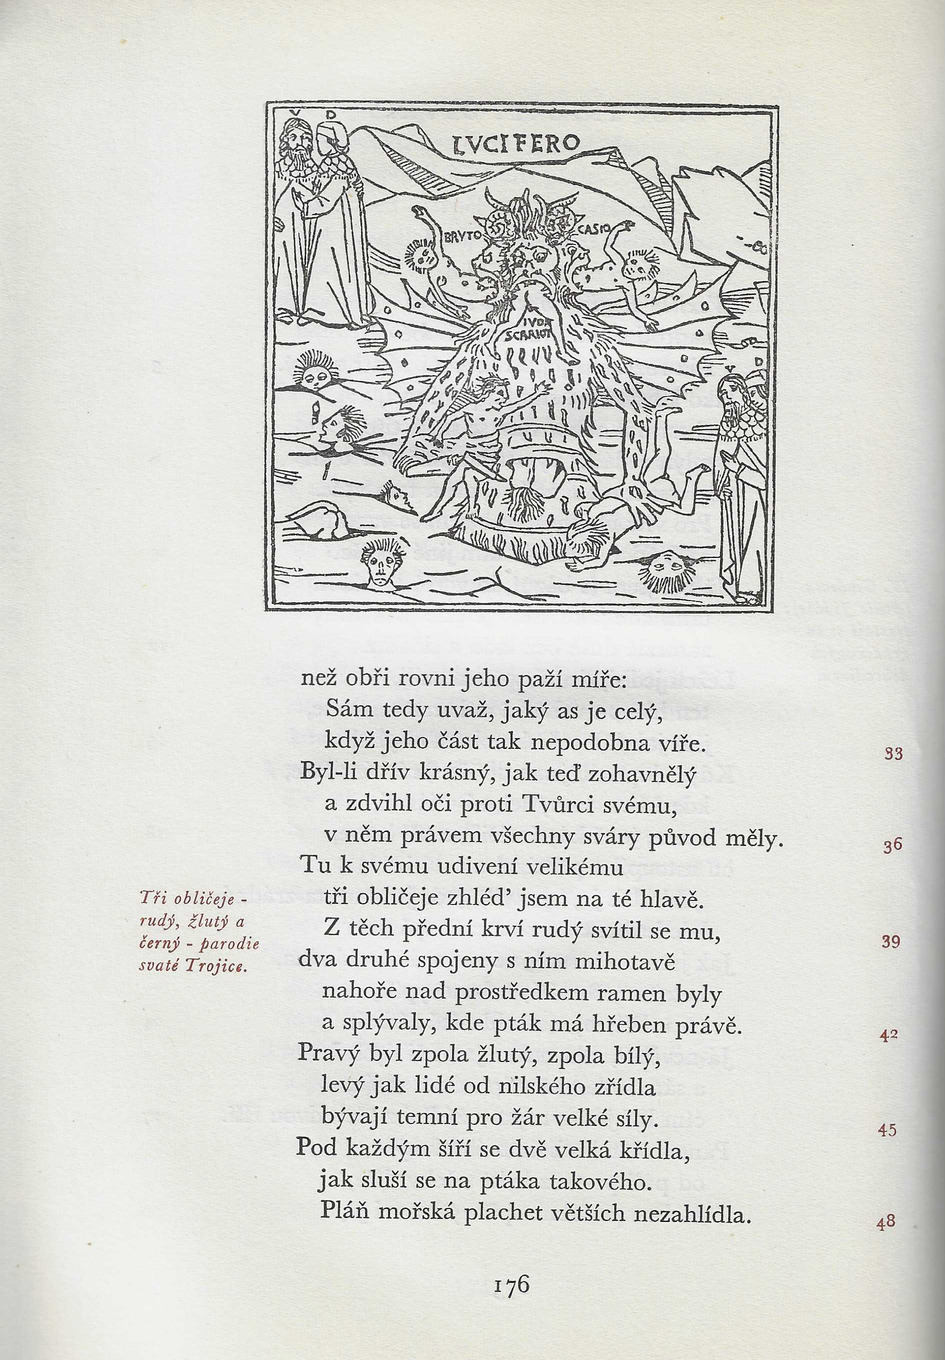 V D
LVCIFERO
BRVTO
CASIO
IVDA
SCARIOT
V D
než obři rovni jeho paží míře:
Sám tedy uvaž, jaký as je celý,
když jeho část tak nepodobna víře.
33
Byl-li dřív krásný, jak teď zohavnělý
a zdvihl oči proti Tvůrci svému,
v něm právem všechny sváry původ měly.
36
Tu k svému udivení velikému
tři obličeje zhléd’ jsem na té hlavě.
Z těch přední krví rudý svítil se mu,
39
Tři obličeje -
rudý, žlutý a
černý - parodie
svaté Trojice.
dva druhé spojeny s ním mihotavě
nahoře nad prostředkem ramen byly
a splývaly, kde pták má hřeben právě.
42
Pravý byl zpola žlutý, zpola bílý,
levý jak lidé od nilského zřídla
bývají temní pro žár velké síly.
45
Pod každým šíří se dvě velká křídla,
jak sluší se na ptáka takového.
Pláň mořská plachet větších nezahlídla.
48
176